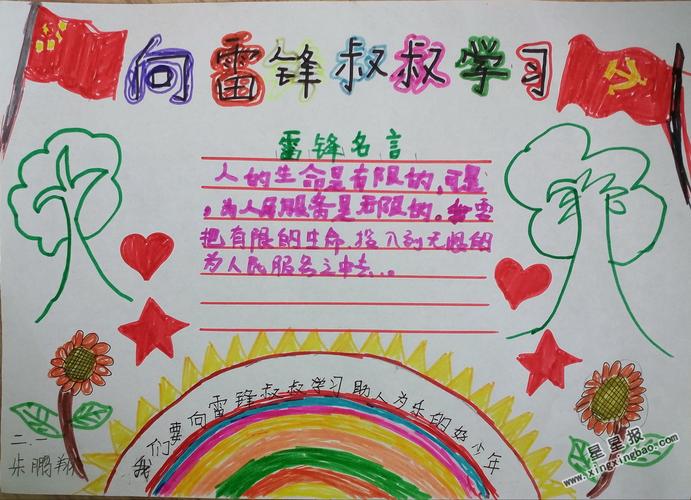 向雷锋叔叔学习
雷锋名言
人的生命是有限的,可是
,为人民服务是无限的。我要
把有限的生命,投入到无限的
为人民服务之中去...
我们要向雷锋叔叔学习助人为乐的好少年
二.一
朱鹏翔
星星报
www.xingxingbao.com